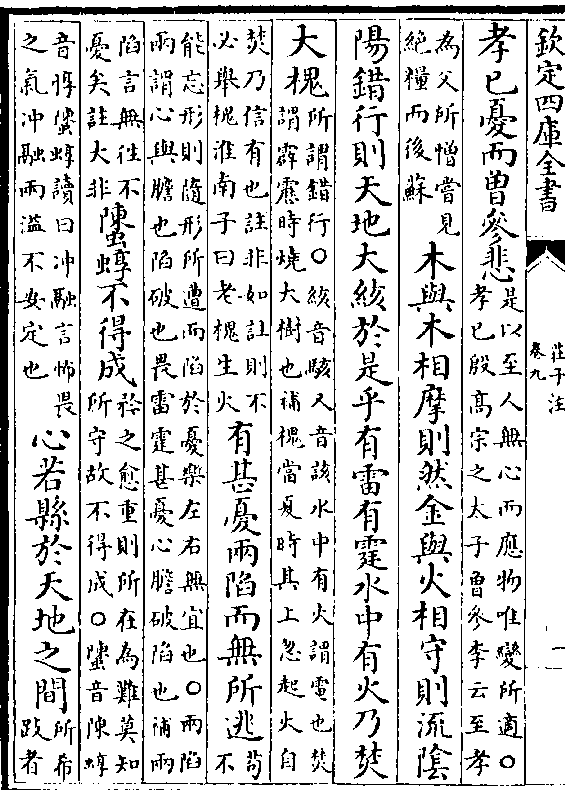 欽定四庫全書
莊子注
卷九
一
孝已憂而曾參悲是以至人無心而應物唯變所適○孝已殷高宗之太子曾參李云至孝
為父所憎嘗見絶糧而後蘇木與木相摩則然金與火相守則流隂
陽錯行則天地大絯於是乎有雷有霆水中有火乃焚
大槐所謂錯行○絯音駭又音該水中有火謂電也焚謂霹靂時燒大樹也補槐當夏時其上忽起火自
焚乃信有也註非如註則不必舉槐淮南子曰老槐生火有甚憂兩陷而無所逃苟不
能忘形則隨形所遭而陷於憂樂左右無宜也○兩陷兩謂心與膽也陷破也畏雷霆甚憂心膽破陷也補兩
陷言無往不憂矣註大非䘆蜳不得成矜之愈重則所在為難莫知所守故不得成○䘆音陳蜳
音惇䘆蜳讀曰沖融言怖畏之氣沖融兩溢不安定也心若縣於天地之間所希跂者